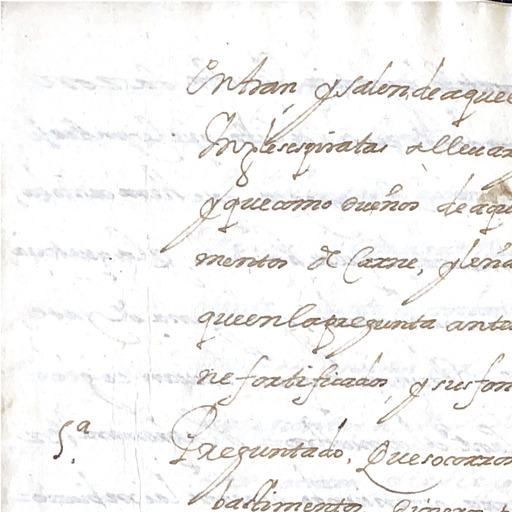 entran y salen, de aque
Ingleses piratas a lleuar
y que como dueños de aqu
mentos de Carne, y leña
que en la pregunta ante
ne fortificados, y sus fon
5.ª Preguntado, Que socorro
bastimentos, dinero